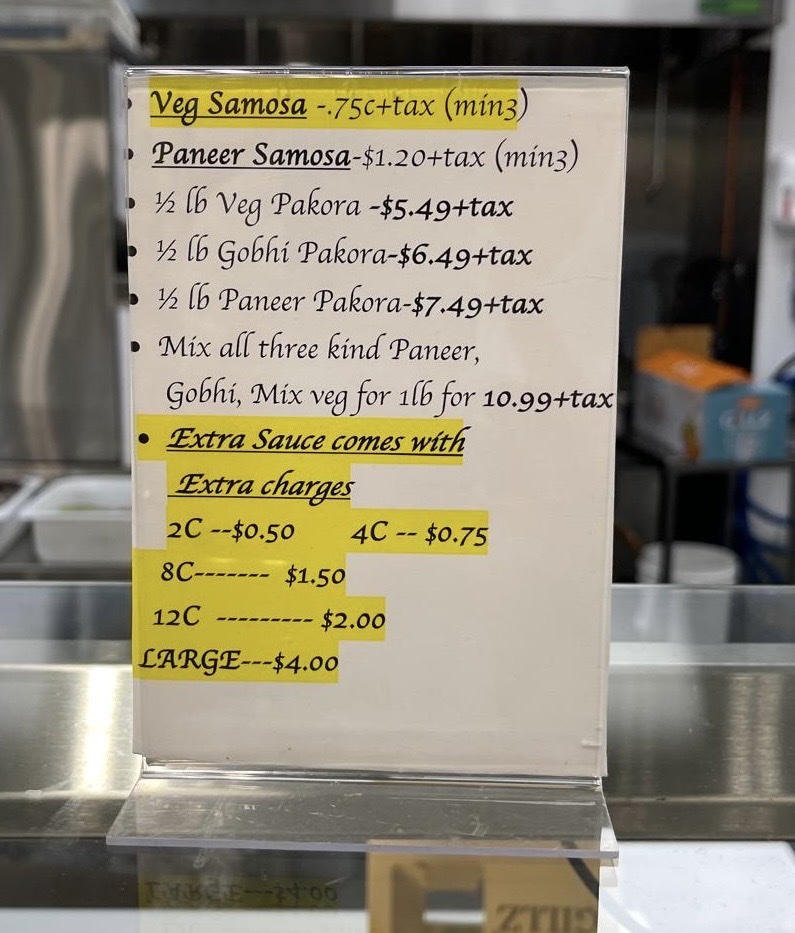 • Veg Samosa -.75c+tax (min3)
• Paneer Samosa-$1.20+tax (min3)
• ½ lb Veg Pakora -$5.49+tax
• ½ lb Gobhi Pakora-$6.49+tax
• ½ lb Paneer Pakora-$7.49+tax
• Mix all three kind Paneer,
Gobhi, Mix veg for 1lb for 10.99+tax
• Extra Sauce comes with
Extra charges
2C --$0.50 4C -- $0.75
8C------- $1.50
12C --------- $2.00
LARGE---$4.00